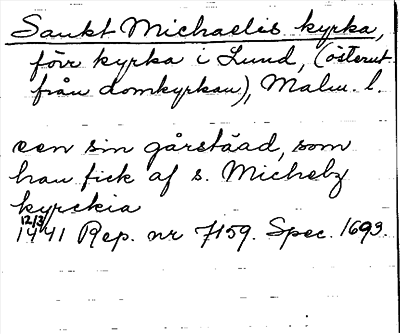 Sankt Michaelis kyrka,
förr kyrka i Lund, (österut
från domkyrkan), Malm. l.
een sin gårstååd, som
han fick af s. Michelz
kyrckia
12/3
1441 Rep. nr 7159. Spec. 1693.